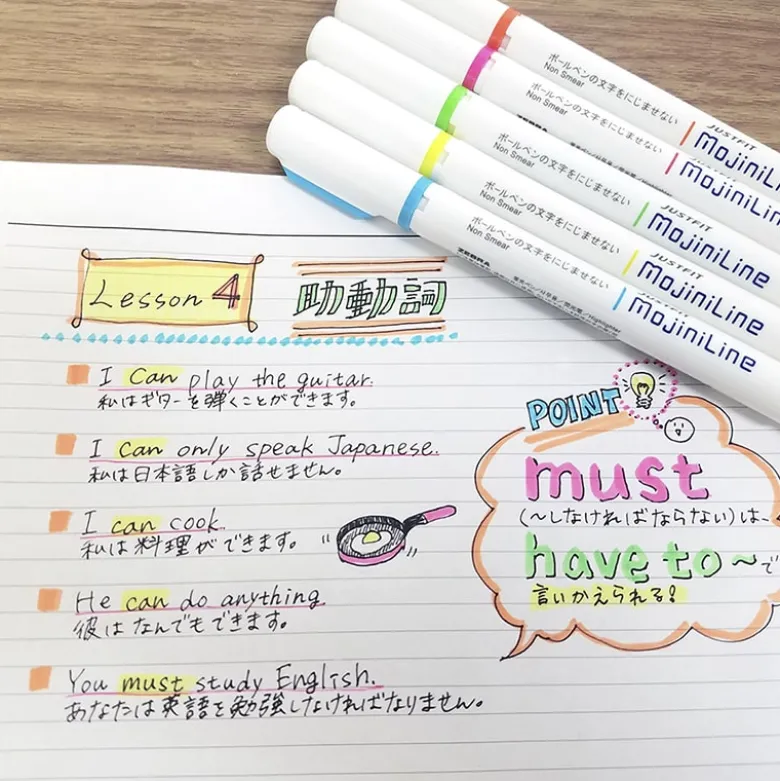 ボールペンの文字をにじませない
Non Smear
JUSTFIT
mojiniLine
ボールペンの文字をにじませない
Non Smear
mojiniLine
ボールペンの文字をにじませない
Non Smear
JUSTFIT
mojiniLine
ボールペンの文字をにじませない
Non Smear
JUSTFIT
mojiniLine
ボールペンの文字をにじませない
Non Smear
ZEBRA
JUSTFIT
mojiniLine
Lesson 4 助動詞
I can play the guitar.
私はギターを弾くことができます。
I can only speak Japanese.
私は日本語しか話せません。
I can cook.
私は料理ができます。
He can do anything.
彼はなんでもできます。
You must study English.
あなたは英語を勉強しなければなりません。
POINT
must
(~しなければならない)は、
have to ~で
言いかえられる!